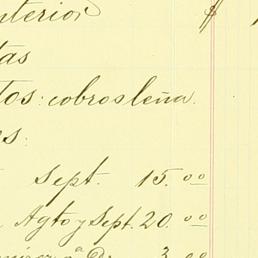 nterior $
tas
tos: cobros leña.
es:
Sept. 15.00
Agto y Sept. 20.00
3.00